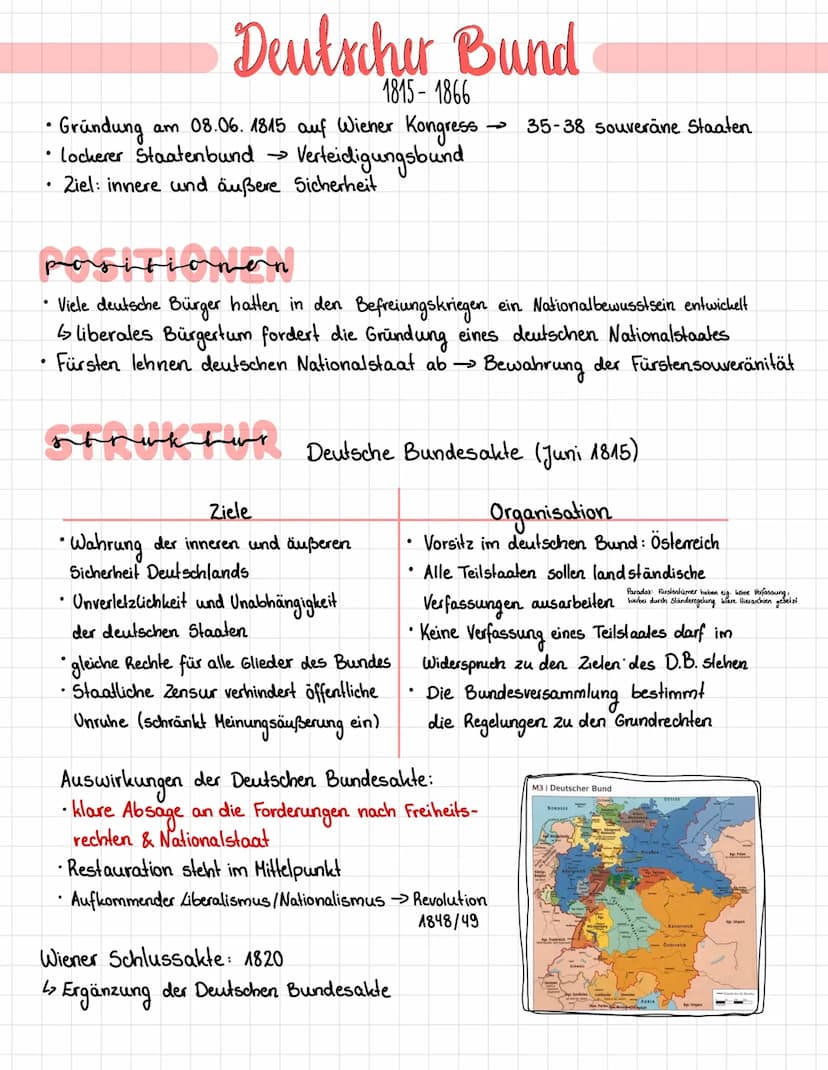 Deutscher Bund
1815 - 1866
• Gründung am 08.06. 1815 auf Wiener Kongress → 35-38 souveräne Staaten
• lockerer Staatenbund → Verteidigungsbund
• Ziel: innere und äußere Sicherheit
POSITIONEN
positionen
• Viele deutsche Bürger hatten in den Befreiungskriegen ein Nationalbewusstsein entwickelt
↳ liberales Bürgertum fordert die Gründung eines deutschen Nationalstaates
• Fürsten lehnen deutschen Nationalstaat ab → Bewahrung der Fürstensouveränität
STRUKTUR
struktur
Deutsche Bundesakte (Juni 1815)
Ziele
• Wahrung der inneren und äußeren
Sicherheit Deutschlands
• Unverletzlichkeit und Unabhängigkeit
der deutschen Staaten
• gleiche Rechte für alle Glieder des Bundes
• Staatliche Zensur verhindert öffentliche
Unruhe (schränkt Meinungsäußerung ein)
Organisation
• Vorsitz im deutschen Bund: Österreich
• Alle Teilstaaten sollen landständische
Verfassungen ausarbeiten
Paradox: Fürstentümer haben eig. keine Verfassung,
durch Ständeregelung klare Hierarchien gesetzt
• Keine Verfassung eines Teilstaates darf im
Widerspruch zu den Zielen des D.B. stehen
• Die Bundesversammlung bestimmt
die Regelungen zu den Grundrechten
Auswirkungen der Deutschen Bundesakte:
• klare Absage an die Forderungen nach Freiheits-
rechten & Nationalstaat
• Restauration steht im Mittelpunkt
• Aufkommender Liberalismus/Nationalismus → Revolution
1848/49
Wiener Schlussakte: 1820
↳ Ergänzung der Deutschen Bundesakte
M3 | Deutscher Bund
Nordsee
Ostsee
Preußen
Königreich
Kaiserreich
Österreich
Schweiz